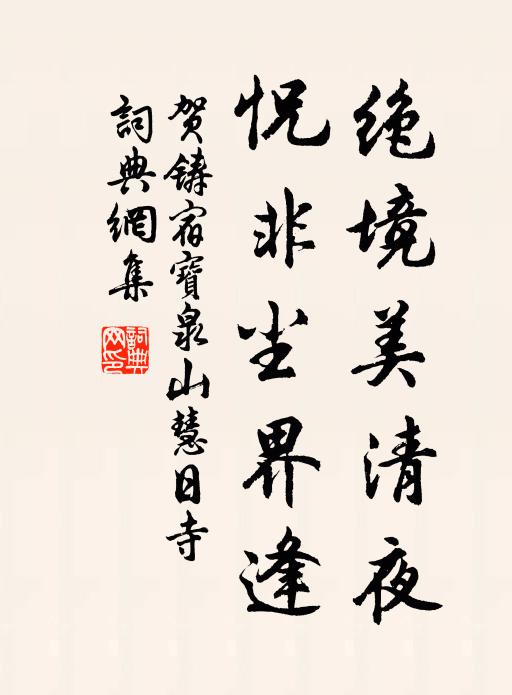 绝境美清夜
怳非尘界逢
贺铸宿寳泉山慧日寺
詞典網集
詞典网印